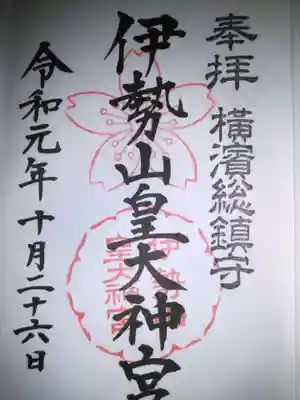 奉拝 横濱総鎮守
伊勢山皇大神宮
令和元年十月二十六日
伊勢山
皇大神宮